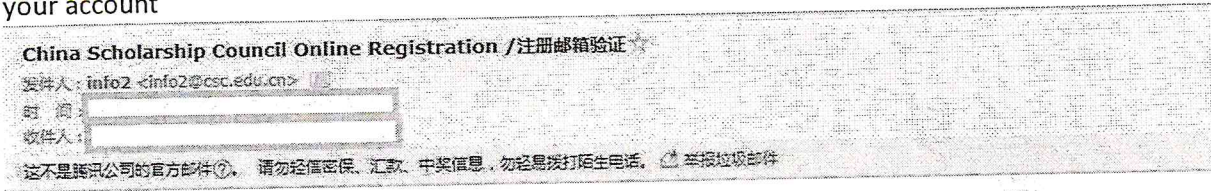 your account
China Scholarship Council Online Registration /注册邮箱验证☆
发件人：info2 <info2@csc.edu.cn>
时 间：
收件人：
这不是腾讯公司的官方邮件?。 请勿轻信密保、汇款、中奖信息，勿轻易拨打陌生电话。 举报垃圾邮件